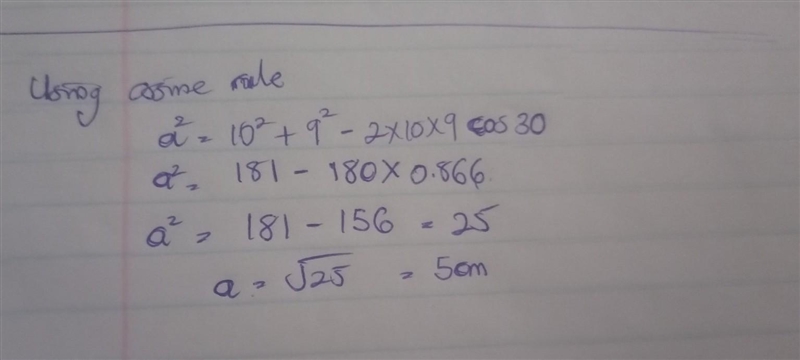 Using cosine rule
a² = 10² + 9² - 2×10×9 cos 30
a² = 181 - 180 × 0.866
a² = 181 - 156 = 25
a = √25 = 5cm